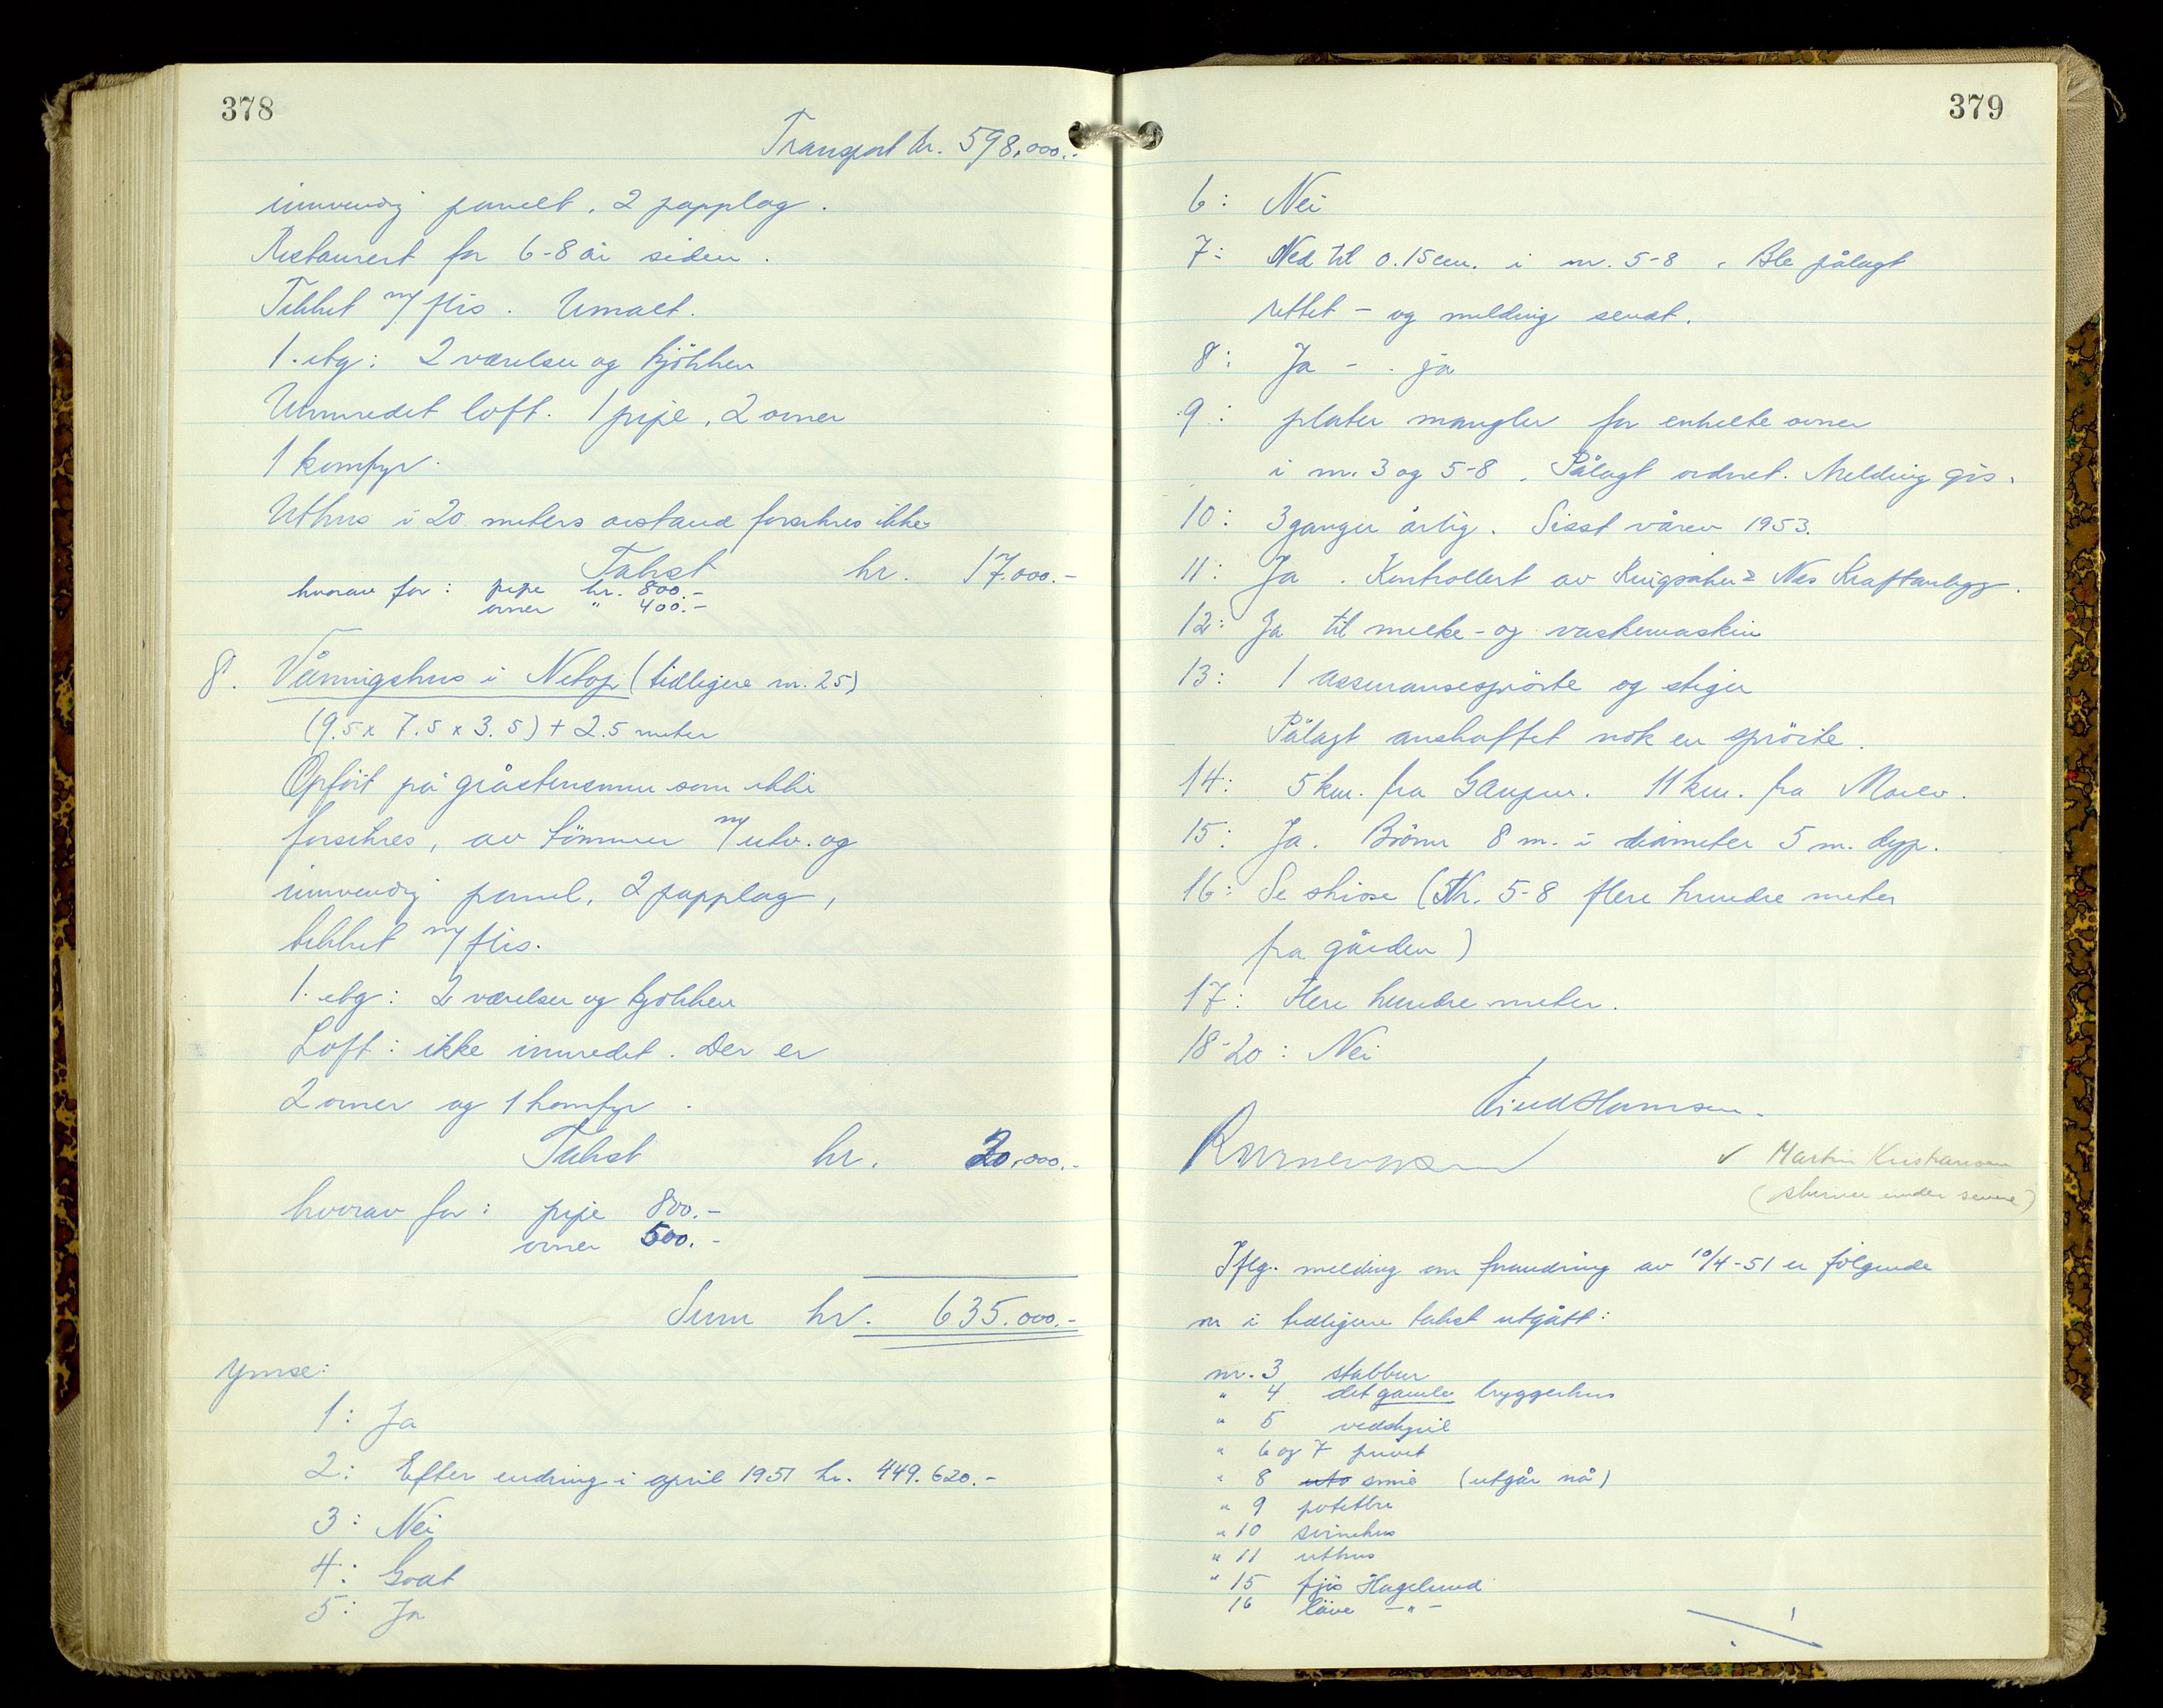 378
Transport kr. 598.000.-
innvendig panelt, 2 papplag.
Restaurert for 6-8 år siden.
Tekket m/ flis. Umalt.
1. etg: 2 værelser og kjökken
Uinnredet loft. 1 pipe, 2 ovner
1 komfyr.
Uthus i 20 meters avstand forsikres ikke.
Takst kr. 17.000.-
hvorav for: pipe kr. 800.-
ovner " 400.-
8. Våningshus i Netop (tidligere nr. 25)
(9.5 x 7.5 x 3.5) + 2.5 meter
Opfört på gråstensmur som ikke
forsikres, av tömmer m/ utv. og
innvendig panel, 2 papplag,
tekket m/ flis.
1. etg: 2 værelser og kjökken
Loft: ikke innredet. Der er
2 ovner og 1 komfyr.
Takst kr. 20.000.-
hvorav for: pipe 800.-
ovner 500.-
Sum kr. 635.000.-
Ymse:
1: Ja
2: Efter endring i april 1951 kr. 449.620.-
3: Nei
4: Godt
5: Ja
379
6: Nei
7: Ned til 0.15 cm. i nr. 5-8. Ble pålagt
rettet - og melding sendt.
8: Ja - . ja
9: plater mangler for enkelte ovner
i nr. 3 og 5-8. Pålagt ordnet. Melding gis.
10: 3 ganger årlig. Sisst våren 1953.
11: Ja. Kontrollert av Ringsaker & Nes Kraftanlegg.
12: Ja til melke- og vaskemaskin
13: 1 assuransespröite og stiger
Pålagt anskaffet nok en spröite.
14: 5 km. fra Gaupen. 11 km. fra Moelv.
15: Ja. Brönn 8 m. i diameter 5 m. dyp.
16: Se skisse (Nr. 5-8 flere hundre meter
fra gården)
17: Flere hundre meter.
18-20: Nei
✓ Martin Kristiansen
(skriver under senere)
Iflg. melding om forandring av 10/4-51 er fölgende
nr i tidligere takst utgått:
nr. 3 stabbur
" 4 det gamle bryggerhus
" 5 vedskjul
" 6 og 7 privet
" 8 uto smie (utgår nå)
" 9 potetbu
" 10 svinehus
" 11 uthus
" 15 fjös Hagelund
16 låve - " -